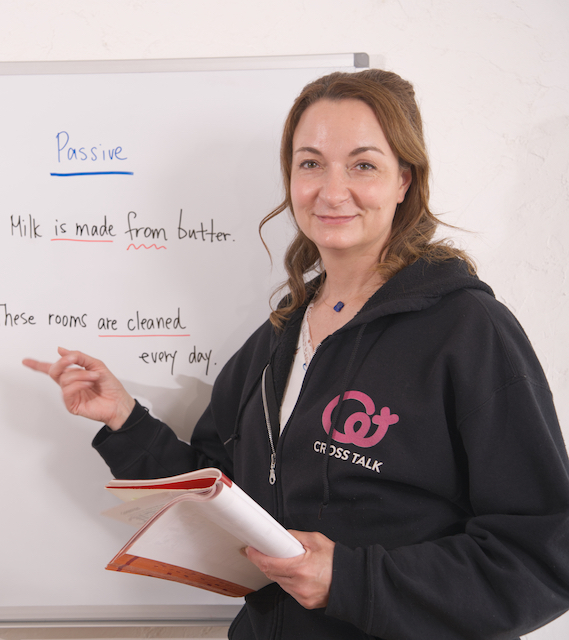 Passive
Milk is made from butter.
These rooms are cleaned
every day.
CROSS TALK